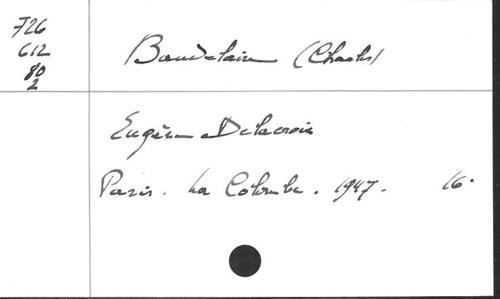 726
612
80
2
Baudelaire (Charles)
Eugène Delacroix
Paris. La Colombe. 1947. 16°